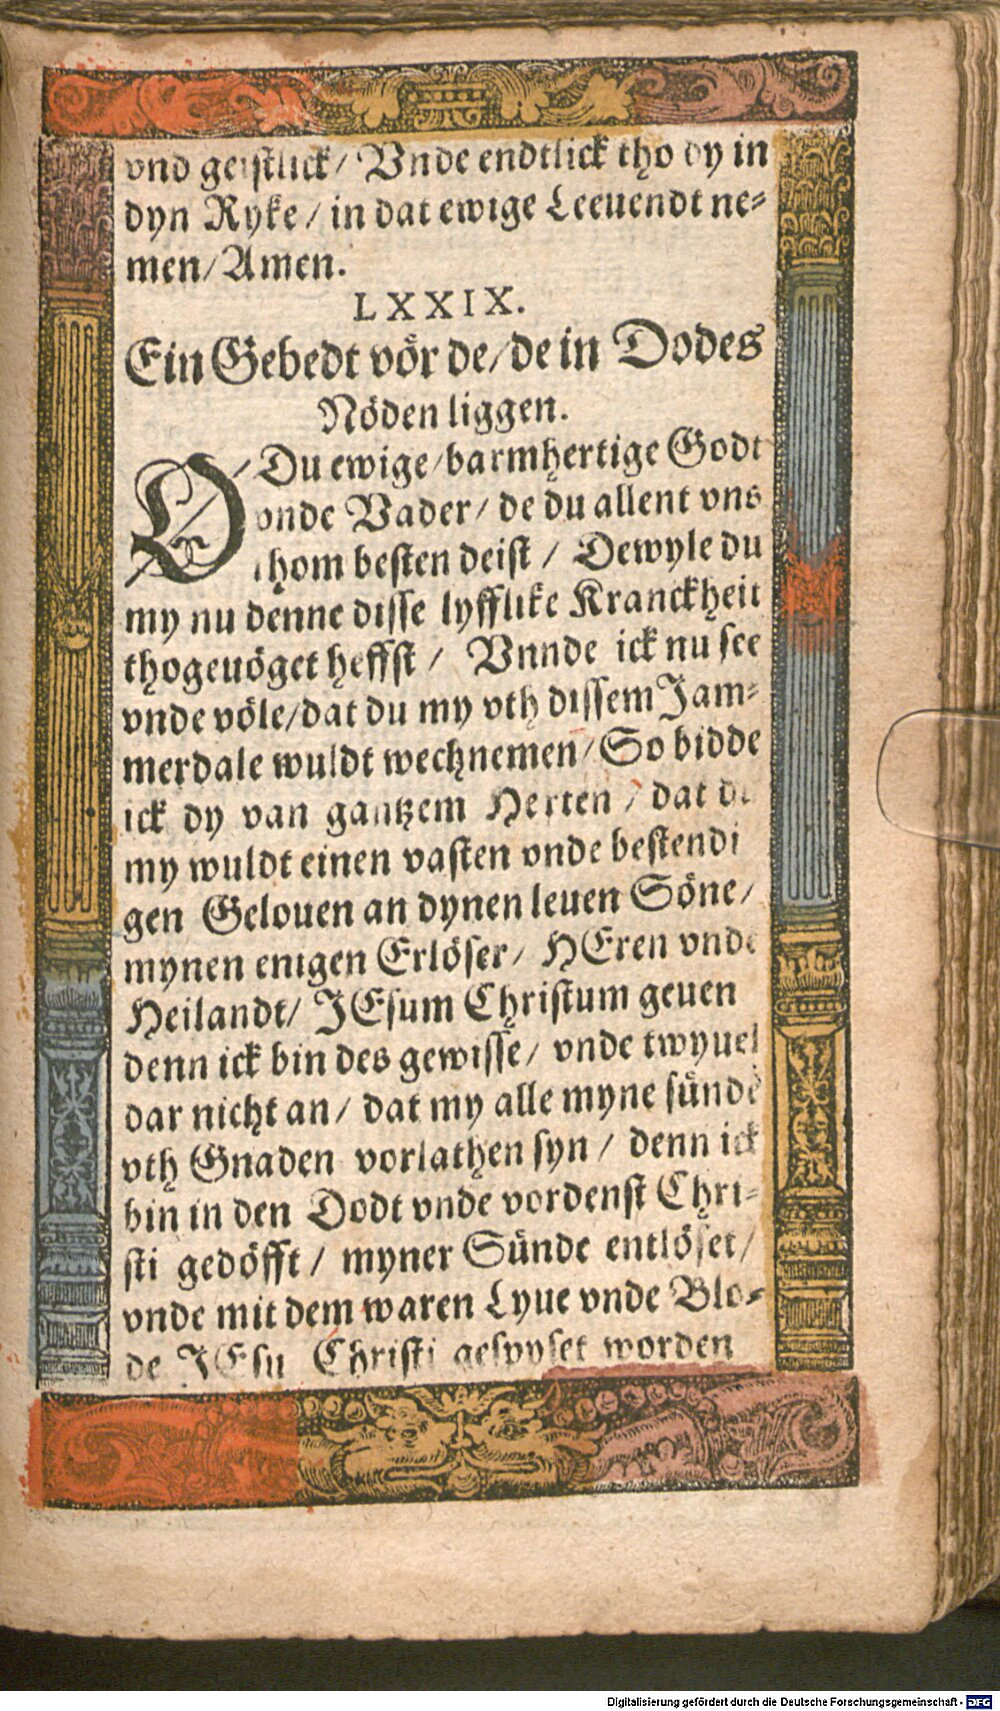 vnd geistlick / Vnde endtlick tho dy in
dyn Ryke / in dat ewige Leeuendt ne=
men / Amen.
LXXIX.
Ein Gebedt vör de / de in Dodes
Nöden liggen.
O / Du ewige / barmhertige Godt
vnde Vader / de du allent vns
thom besten deist / Dewyle du
my nu denne disse lyfflike Kranckheit
thogeuöget heffst / Vnnde ick nu see
vnde völe / dat du my vth dissem Jam=
merdale wuldt wechnemen / So bidde
ick dy van gantzem Herten / dat du
my wuldt einen vasten vnde bestendi
gen Gelouen an dynen leuen Söne /
mynen enigen Erlöser / HEren vnde
Heilandt / JEsum Christum geuen
denn ick bin des gewisse / vnde twyuel
dar nicht an / dat my alle myne sünde
vth Gnaden vorlathen syn / denn ick
bin in den Dodt vnde vordenst Chri=
sti gedöfft / myner Sünde entlöset /
vnde mit dem waren Lyue vnde Blo=
de JEsu Christi gespyset worden
Digitalisierung gefördert durch die Deutsche Forschungsgemeinschaft - DFG